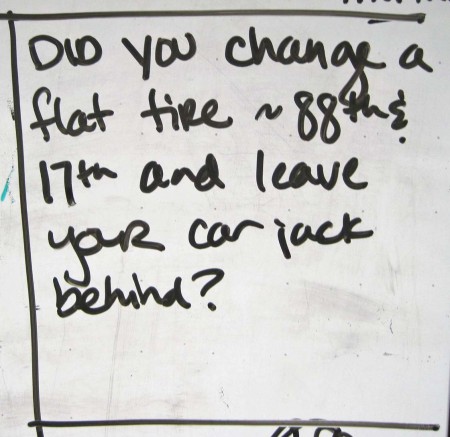 DID YOU change a
flat tire ~ 88th &
17th and leave
your car jack
behind?